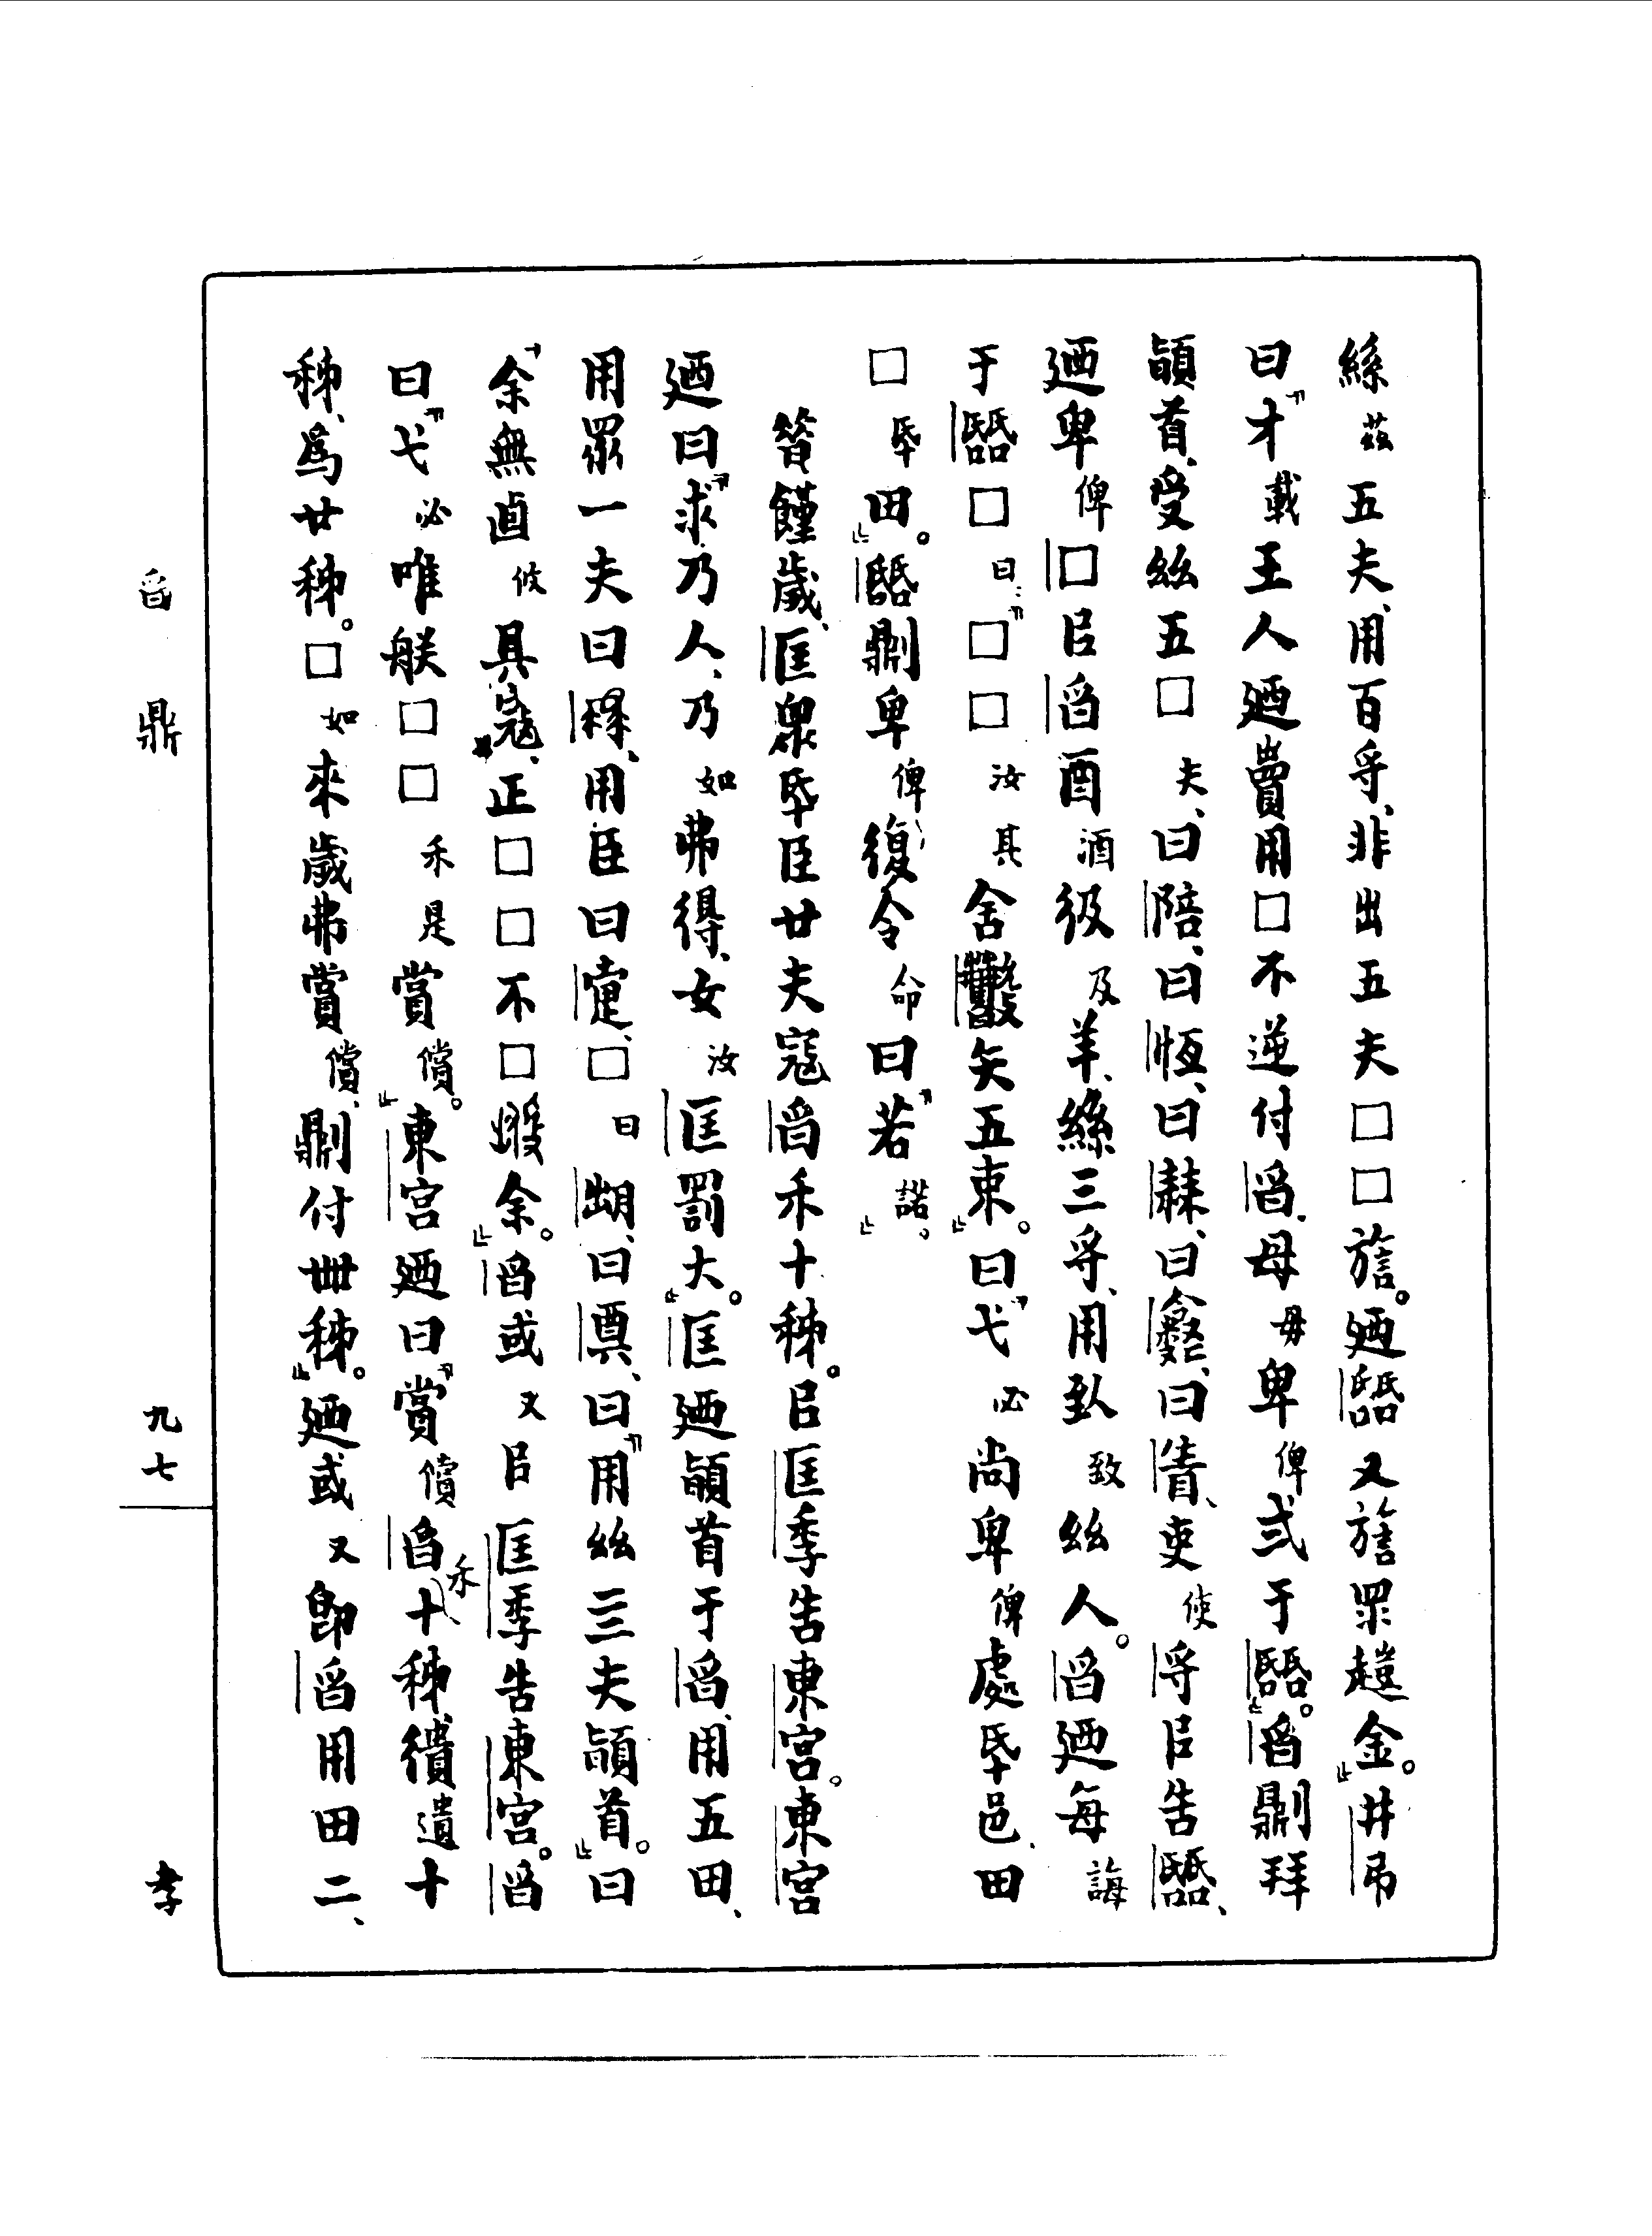 絲茲五夫、用百寽、非出五夫□□旂。廼䛠又旂眔趞金。』井叔
曰『才載王人廼賣用□不逆付曶、母毋卑俾弍于䛠。』曶鼎拜
䭫首、受絲五□夫、曰陪、曰恆、曰䅘、曰龢、曰眚、吏使寽㠯告䛠、
廼卑俾□㠯曶酉酒彶及羊、絲三寽、用臸致絲人。曶廼每誨
于䛠□曰、『□□汝其舍矢五束。』曰『弋必尚卑俾處氒邑、田
□氒田。』䛠鼎卑俾復令命曰『若諾。』
昔饉歲、匡眾氒臣廿夫寇曶禾十秭。㠯匡季告東宮。東宮
廼曰『求乃人、乃如弗得、女汝匡罰大。』匡廼䭫首于曶、用五田、
用眾一夫曰、用臣曰疐、□曰朏、曰奠、曰『用絲三夫䭫首。』曰
『余無卣攸具寇、正□□不□余。』曶或又㠯匡季告東宮。曶
曰『弋必唯朕□□禾是賞償。』東宮廼曰『賞償曶禾十秭、遺十
秭、為廿秭。□如來歲弗賞償、鼎付卌秭。』廼或又即曶用田二、
曶鼎
九七
孝